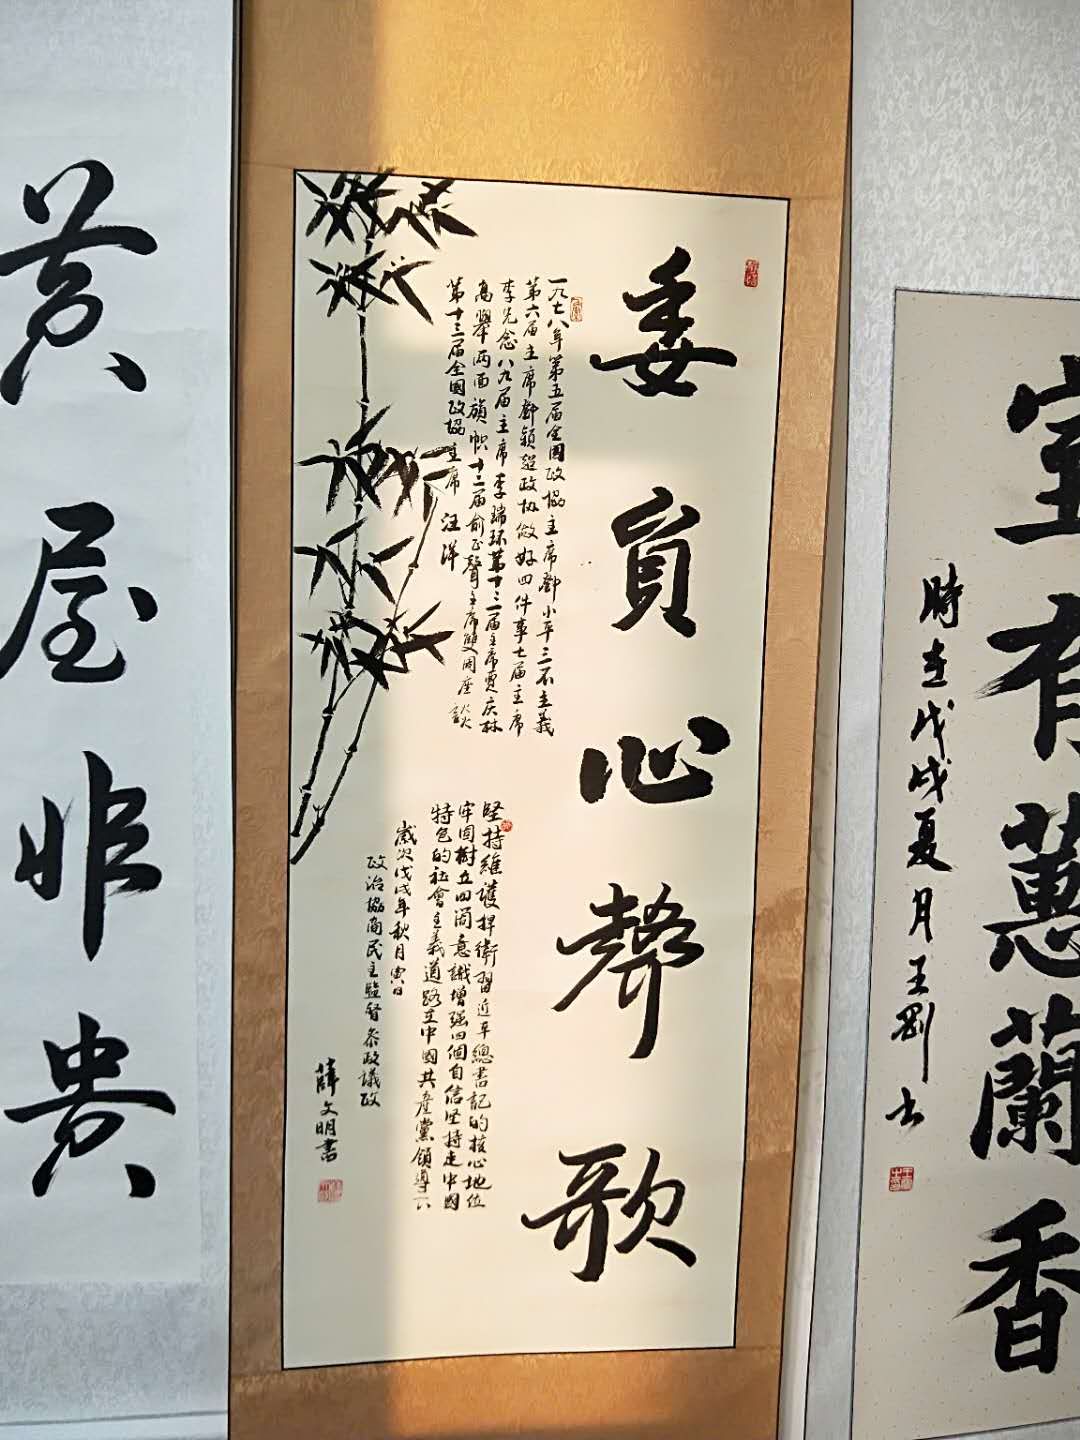 室有蕙蘭香
時在戊戌夏月王剛書
委員心聲歌
一九七八年第五届全國政協主席鄧小平三不主義
第六届主席鄧穎超政协做好四件事七届主席
李先念八九届主席李瑞环第十二届主席賈庆林
高舉两面旗帜十二届俞正聲主席雙周座談
第十三届全國政協主席 汪洋
堅持維護捍衛習近平總書記的核心地位
牢固樹立四個意識增强四個自信坚持走中國
特色的社會主義道路在中國共產黨領導下
歲次戊戌年秋月寅日
政治協商民主監督参政議政
薛文明書
黄屋非贵